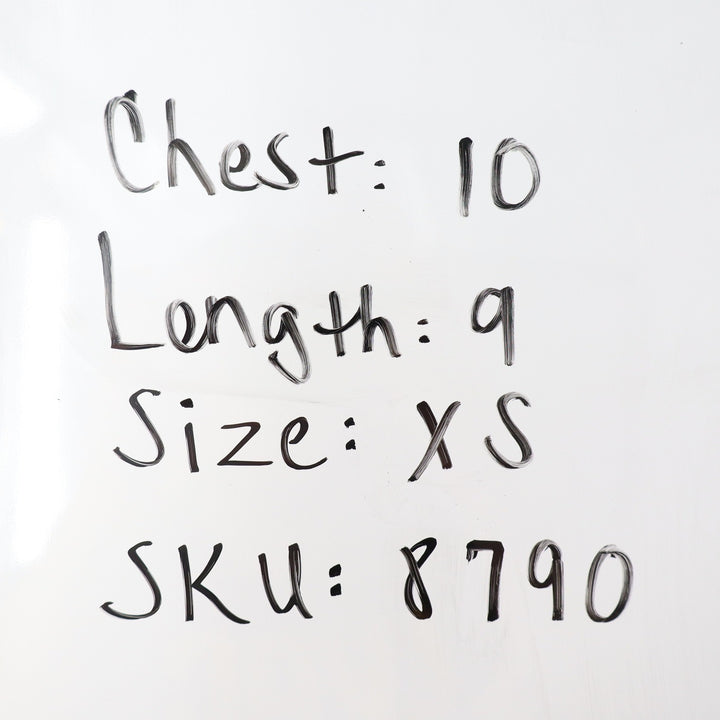 Chest: 10
Length: 9
Size: XS
SKU: 8790